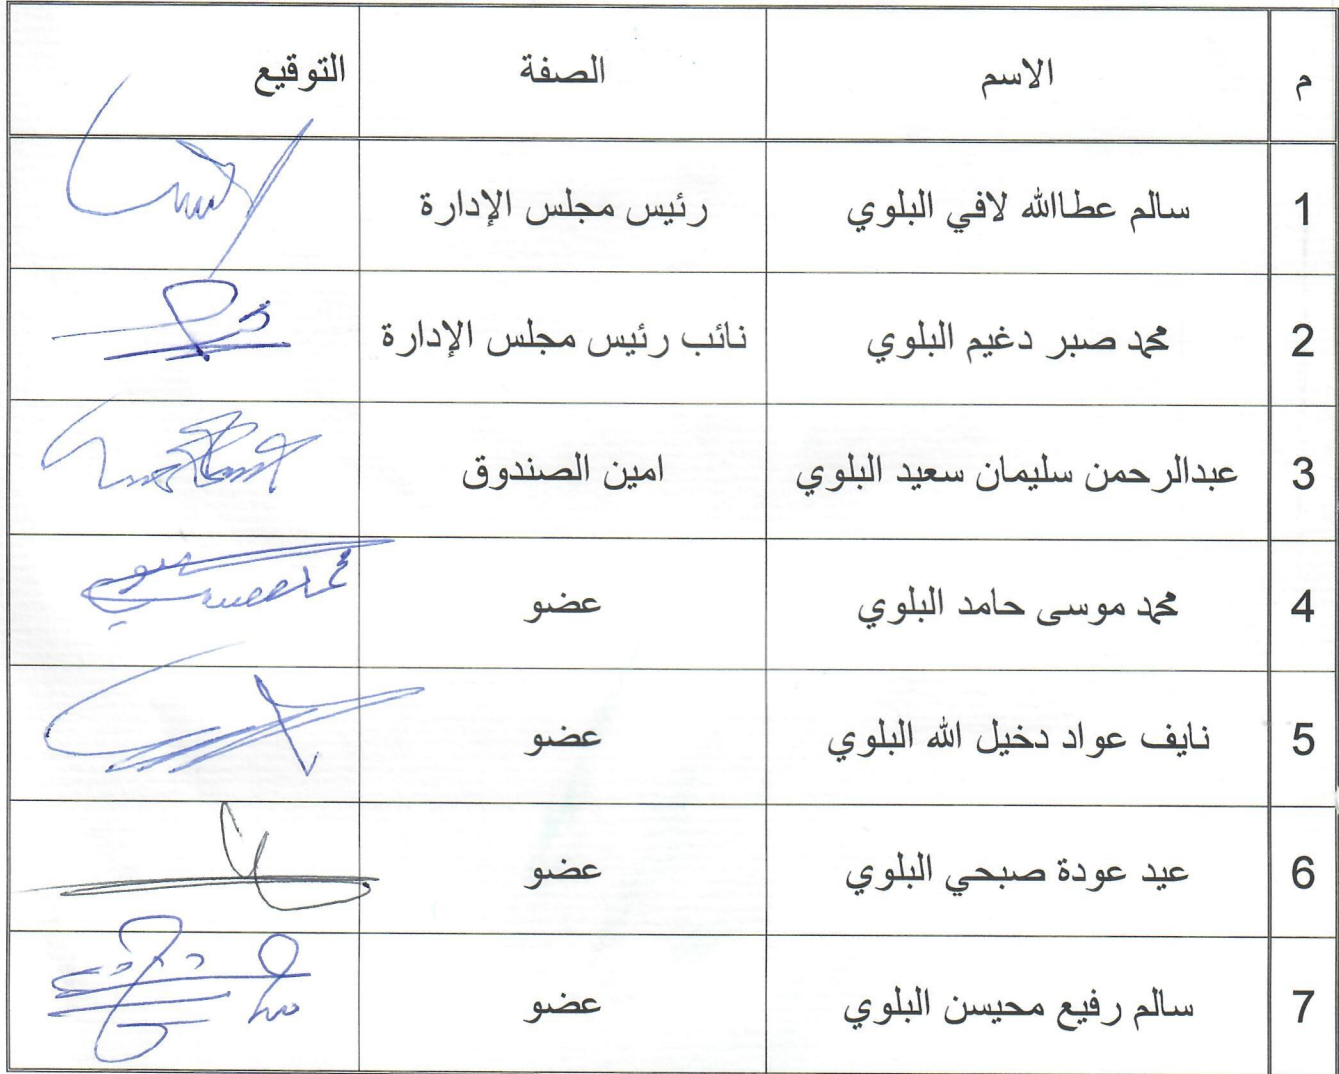 م الاسم الصفة التوقيع
1 سالم عطاالله لافي البلوي رئيس مجلس الإدارة
2 محمد صبر دغيم البلوي نائب رئيس مجلس الإدارة
3 عبدالرحمن سليمان سعيد البلوي امين الصندوق
4 محمد موسى حامد البلوي عضو
5 نايف عواد دخيل الله البلوي عضو
6 عيد عودة صبحي البلوي عضو
7 سالم رفيع محيسن البلوي عضو